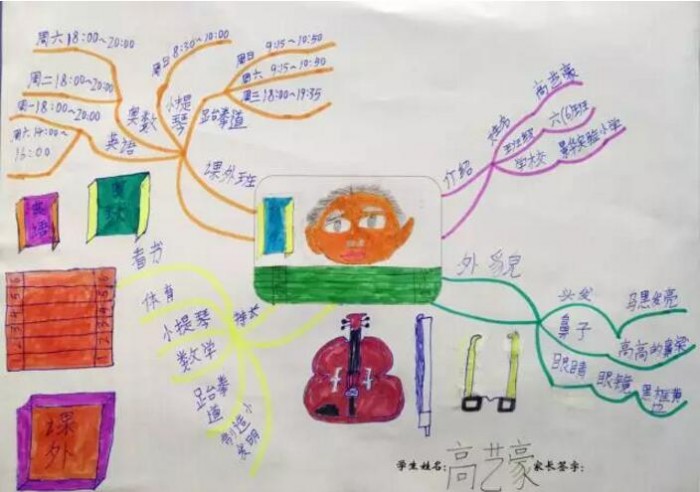 周六18:00~20:00
周二18:00~20:00
周一18:00~20:00
周六14:00~
16:00
英语
奥数
周日8:30~10:00
小提琴
周日 9:15~10:50
周六 9:15~10:50
周三18:00~19:35
跆拳道
课外班
介绍
姓名
高艺豪
班级
六(6)班
学校
实验小学
英语
奥数
看书
体育
小提琴
数学
跆拳道
制造小发明
特长
1 2 3 4 5 6
1 2 3 4 5 6
课外
外貌
头发
乌黑发亮
鼻子
高高的鼻梁
眼睛
眼镜
学生姓名:高艺豪
家长签字: